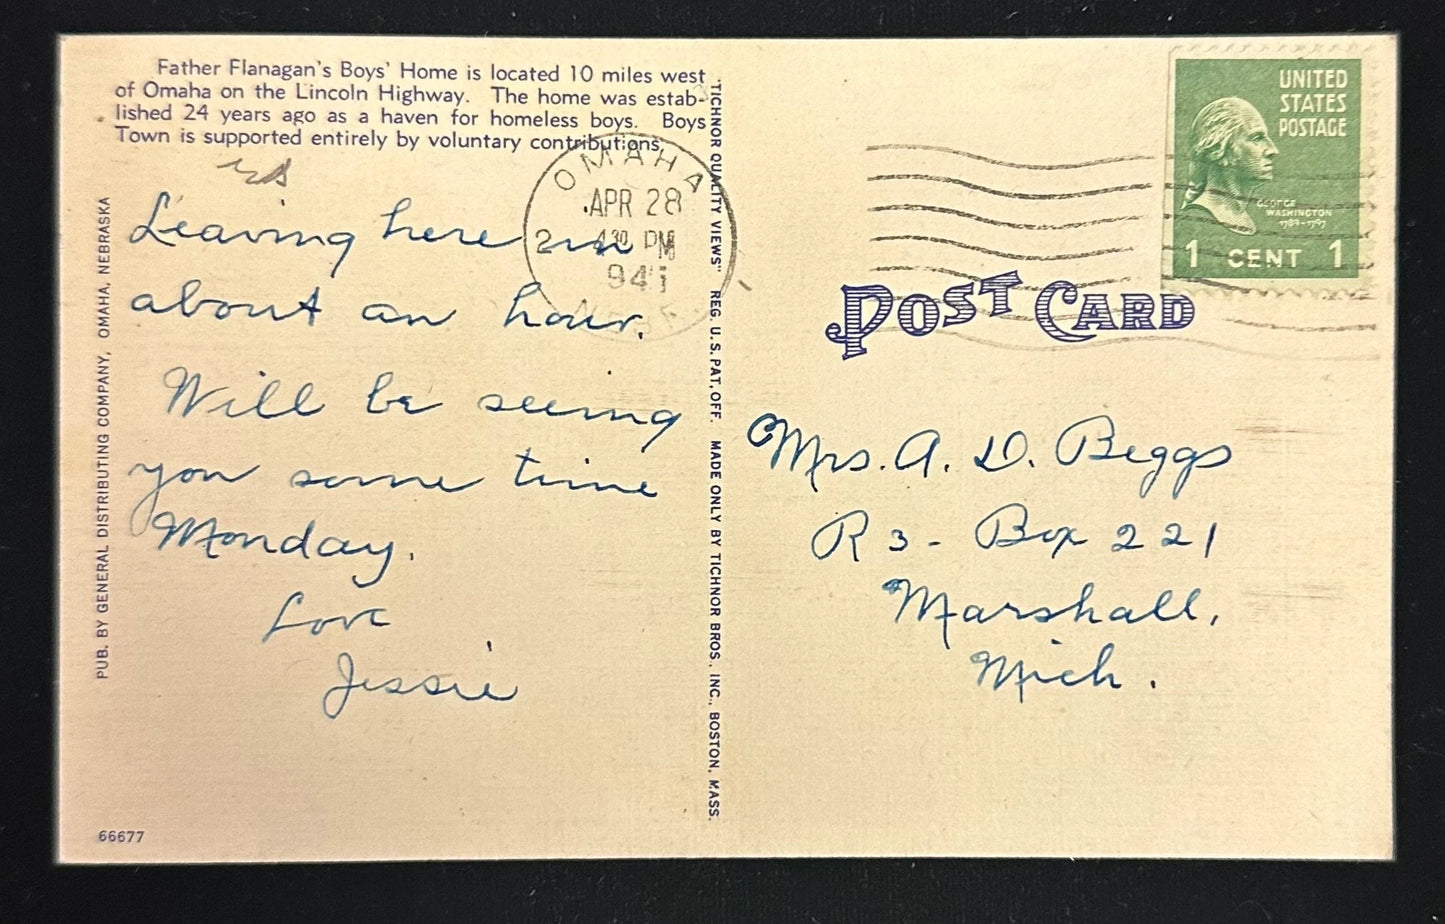 Father Flanagan's Boys' Home is located 10 miles west
of Omaha on the Lincoln Highway. The home was estab-
lished 24 years ago as a haven for homeless boys. Boys
Town is supported entirely by voluntary contributions.
Leaving here in
about an hour.
Will be seeing
you some time
Monday.
Love
Jessie
66677
PUB. BY GENERAL DISTRIBUTING COMPANY, OMAHA, NEBRASKA
"TICHNOR QUALITY VIEWS" REG. U. S. PAT. OFF. MADE ONLY BY TICHNOR BROS., INC., BOSTON, MASS.
OMAHA
APR 28
430 PM
UNITED
STATES
POSTAGE
GEORGE
WASHINGTON
1789-1797
1 CENT 1
POST CARD
Mrs. A. D. Beggs
R 3 - Box 221
Marshall,
Mich.